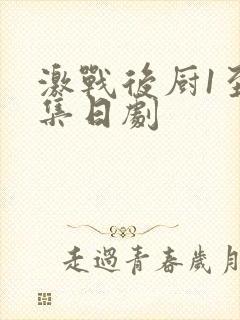 激戰後厨1至
集日劇
走過青春歲月